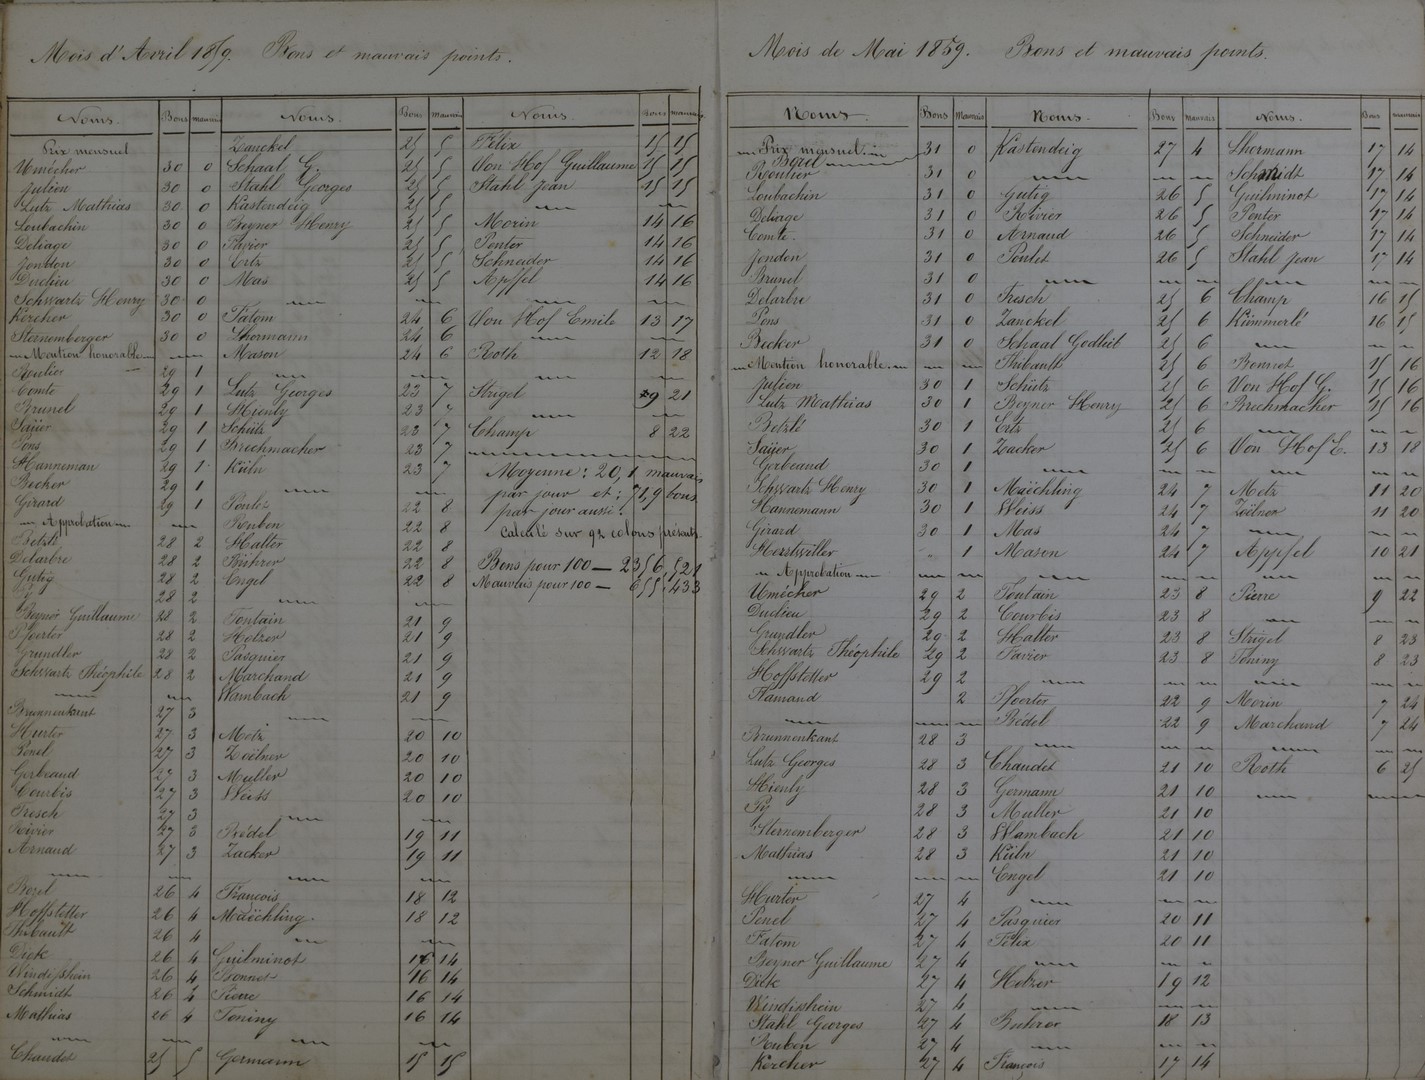 Mois d'Avril 1859. Bons et mauvais points.
Noms. Bons mauvais
Prix mensuel
Umécher 30 0
Julien 30 0
Lutz Mathias 30 0
Loubachin 30 0
Deliage 30 0
Jondon 30 0
Duclieu 30 0
Schwartz Henry 30 0
Kercher 30 0
Sternemberger 30 0
Mention honorable
Routier 29 1
Comte 29 1
Brunel 29 1
Saÿer 29 1
Pons 29 1
Hanneman 29 1
Becker 29 1
Girard 29 1
Approbation
Betzlé 28 2
Delarbre 28 2
Gutig 28 2
28 2
Beyner Guillaume 28 2
Pfoerter 28 2
Grundler 28 2
Schwartz Théophile 28 2
Brunnenkant 27 3
Hurter 27 3
Penel 27 3
Gerbeaud 27 3
Courbis 27 3
Fresch 27 3
Rivier 27 3
Arnaud 27 3
Borel 26 4
Hoffstetter 26 4
Thibault 26 4
Dick 26 4
Windisshein 26 4
Schmidt 26 4
Mathias 26 4
Chaudet 25 5
Noms. Bons Mauvais
Zanckel 25 5
Schaal G. 25 5
Stahl Georges 25 5
Kastendeig 25 5
Beyner Henry 25 5
25 5
Ertz 25 5
Mas 25 5
Fatom 24 6
Lhormann 24 6
Mason 24 6
Lutz Georges 23 7
Hienly 23 7
Schütz 23 7
Brechmacher 23 7
Küln 23 7
Poulet 22 8
Rouben 22 8
Halter 22 8
Bührer 22 8
Engel 22 8
Fontain 21 9
Hetzer 21 9
Pasquier 21 9
Marchand 21 9
Wambach 21 9
Metz 20 10
Zoëlner 20 10
Muller 20 10
Weiss 20 10
Bédel 19 11
Zacker 19 11
François 18 12
Maëchling 18 12
Guilminot 16 14
Bonnet 16 14
Pierre 16 14
Toniny 16 14
Germann 15 15
Noms. Bons mauvais
Félix 15 15
Von Hof Guillaume 15 15
Stahl Jean 15 15
Morin 14 16
Ponter 14 16
Schneider 14 16
Apffel 14 16
Von Hof Emile 13 17
Roth 12 18
Strigel 9 21
Champ 8 22
Moyenne: 20,1 mauvais
par jour et: 71,9 bons
par jour aussi.
Calculé sur 92 colons présents.
Bons pour 100 — 2356,521
Mauvais pour 100 — 655,433
Mois de Mai 1859. Bons et mauvais points.
Noms. Bons Mauvais
Prix mensuel.
Borel 31 0
Routier 31 0
Loubachin 31 0
Deliage 31 0
Comte. 31 0
Jondon 31 0
Brunel 31 0
Delarbre 31 0
Pons 31 0
Becker 31 0
Mention honorable.
Julien 30 1
Lutz Mathias 30 1
Betzlé 30 1
Saÿer 30 1
Gerbeaud 30 1
Schwartz Henry 30 1
Hannemann 30 1
Girard 30 1
Herstwiller 1
Approbation
Umécher 29 2
Duclieu 29 2
Grundler 29 2
Schwartz Théophile 29 2
Hoffstetter 29 2
Flamand 2
Brunnenkant 28 3
Lutz Georges 28 3
Hienly 28 3
28 3
Sternemberger 28 3
Mathias 28 3
Hurter 27 4
Penel 27 4
Fatom 27 4
Beyner Guillaume 27 4
Dick 27 4
Windisshein 27 4
Stahl Georges 27 4
Rouben 27 4
Kercher 27 4
Noms. Bons Mauvais
Kastendeig 27 4
Gutig 26 5
Rivier 26 5
Arnaud 26 5
Poulet 26 5
Fresch 25 6
Zanckel 25 6
Schaal Godlieb 25 6
Thibault 25 6
Schütz 25 6
Beyner Henry 25 6
Ertz 25 6
Zacker 25 6
Maëchling 24 7
Weiss 24 7
Mas 24 7
Mason 24 7
Fontain 23 8
Courbis 23 8
Halter 23 8
Favier 23 8
Pfoerter 22 9
Bédel 22 9
Chaudet 21 10
Germann 21 10
Muller 21 10
Wambach 21 10
Küln 21 10
Engel 21 10
Pasquier 20 11
Félix 20 11
Hetzer 19 12
Buhrer 18 13
François 17 14
Noms. Bons mauvais
Lhormann 17 14
Schmidt 17 14
Guilminot 17 14
Ponter 17 14
Schneider 17 14
Stahl Jean 17 14
Champ 16 15
Kümmerlé 16 15
Bonnet 15 16
Von Hof G. 15 16
Brechmacher 15 16
Von Hof E. 13 18
Metz 11 20
Zoëlner 11 20
Appfel 10 21
Pierre 9 22
Strigel 8 23
Toniny 8 23
Morin 7 24
Marchand 7 24
Roth 6 25